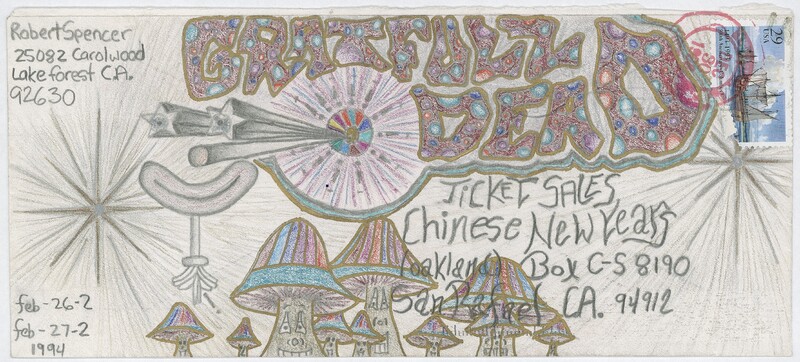 Robert Spencer
25082 Carolwood
Lake forest C.A.
92630
GRATFULL
DEAD
29
USA
TICKET SALES
Chinese New Years
(oakland) Box C-S 8190
San Rafael CA. 94912
feb-26-2
feb-27-2
1994